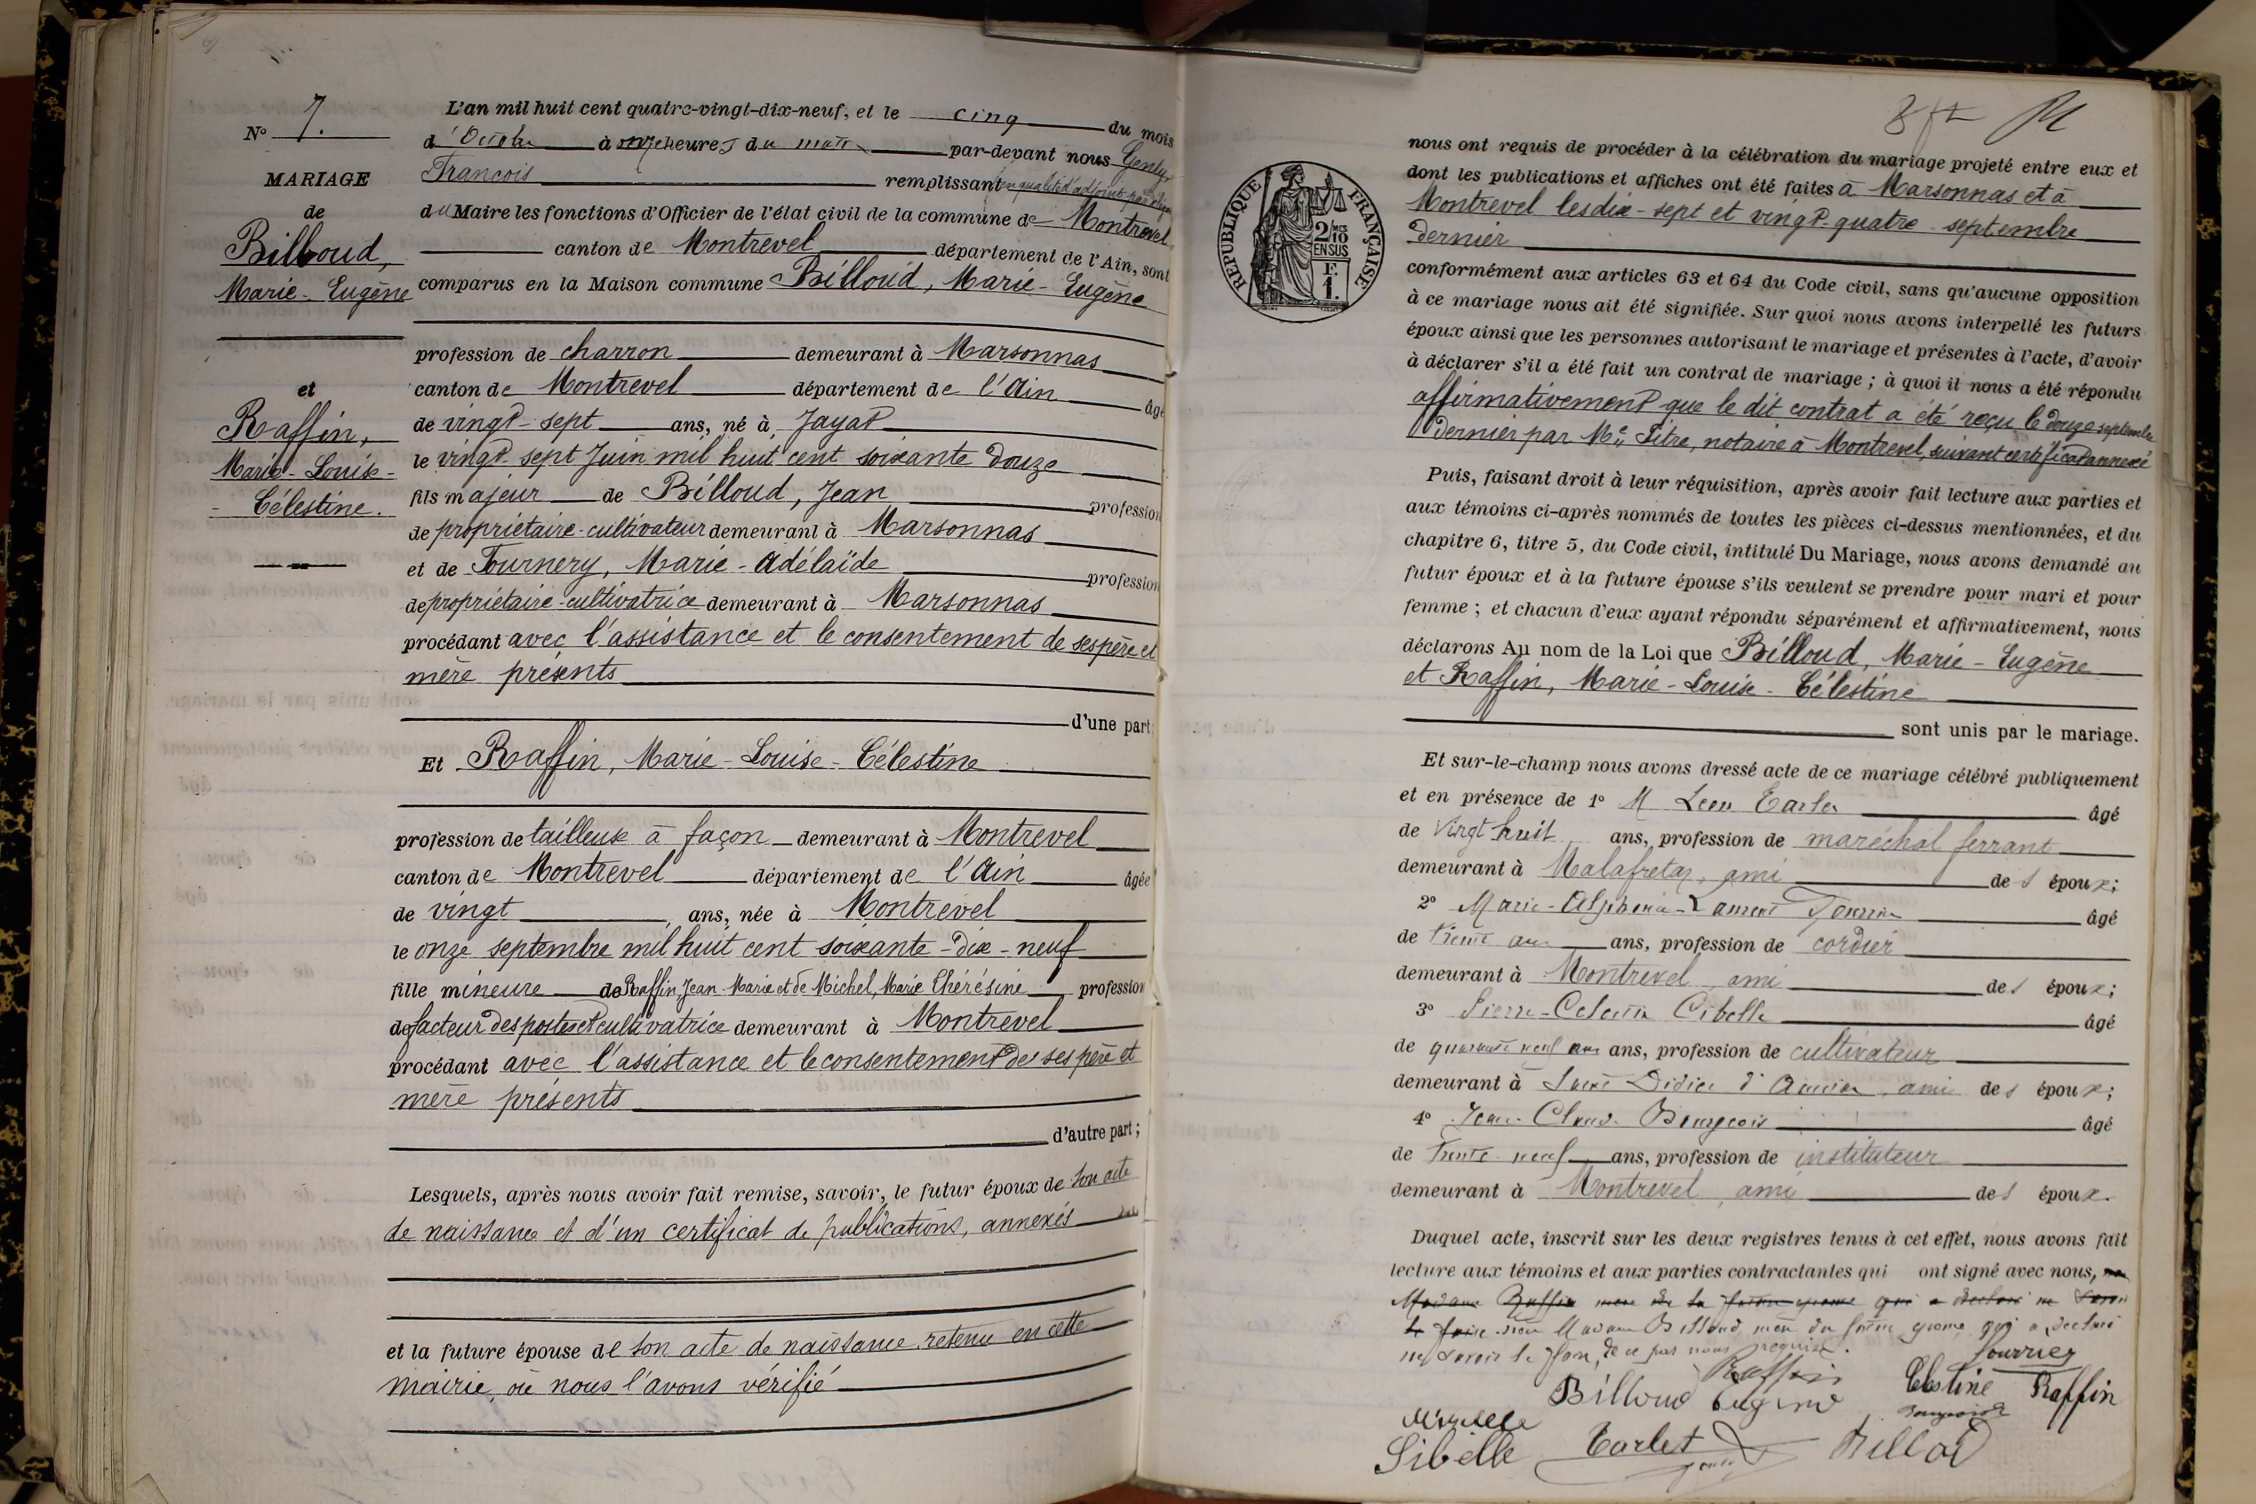 N° 7.
MARIAGE
de
Billoud,
Marie-Eugène
et
Raffin,
Marie-Louise-
-Célestine.
L'an mil huit cent quatre-vingt-dix-neuf, et le cinq du mois
d'Octobre à onze heures du matin par-devant nous
François remplissant en qualité d'adjoint
du Maire les fonctions d'Officier de l'état civil de la commune de Montrevel
canton de Montrevel département de l'Ain, sont
comparus en la Maison commune Billoud, Marie-Eugène
profession de charron demeurant à Marsonnas
canton de Montrevel département de l'Ain âgé
de vingt-sept ans, né à Jayat
le vingt-sept Juin mil huit cent soixante douze
fils majeur de Billoud, Jean profession
de propriétaire-cultivateur demeurant à Marsonnas
et de Fournery, Marie-Adélaïde profession
de propriétaire-cultivatrice demeurant à Marsonnas
procédant avec l'assistance et le consentement de ses père et
mère présents
d'une part
Et Raffin, Marie-Louise-Célestine
profession de tailleuse à façon demeurant à Montrevel
canton de Montrevel département de l'Ain âgée
de vingt ans, née à Montrevel
le onze septembre mil huit cent soixante-dix-neuf
fille mineure de Raffin, Jean Marie et de Michel, Marie Thérésine profession
de facteur des postes et cultivatrice demeurant à Montrevel
procédant avec l'assistance et le consentement de ses père et
mère présents
d'autre part;
Lesquels, après nous avoir fait remise, savoir, le futur époux de son acte
de naissance et d'un certificat de publications, annexés
et la future épouse de son acte de naissance retenu en cette
mairie, où nous l'avons vérifié
RÉPUBLIQUE FRANÇAISE
2/10 EN SUS
F.
1.
nous ont requis de procéder à la célébration du mariage projeté entre eux et
dont les publications et affiches ont été faites à Marsonnas et à
Montrevel les dix-sept et vingt-quatre septembre
dernier
conformément aux articles 63 et 64 du Code civil, sans qu'aucune opposition
à ce mariage nous ait été signifiée. Sur quoi nous avons interpellé les futurs
époux ainsi que les personnes autorisant le mariage et présentes à l'acte, d'avoir
à déclarer s'il a été fait un contrat de mariage; à quoi il nous a été répondu
affirmativement que le dit contrat a été reçu le douze septembre
dernier par Me Pitre, notaire à Montrevel, suivant certificat annexé
Puis, faisant droit à leur réquisition, après avoir fait lecture aux parties et
aux témoins ci-après nommés de toutes les pièces ci-dessus mentionnées, et du
chapitre 6, titre 5, du Code civil, intitulé Du Mariage, nous avons demandé au
futur époux et à la future épouse s'ils veulent se prendre pour mari et pour
femme; et chacun d'eux ayant répondu séparément et affirmativement, nous
déclarons Au nom de la Loi que Billoud, Marie-Eugène
et Raffin, Marie-Louise-Célestine
sont unis par le mariage.
Et sur-le-champ nous avons dressé acte de ce mariage célébré publiquement
et en présence de 1° M Léon âgé
de vingt huit ans, profession de maréchal ferrant
demeurant à Malafretaz, ami des époux;
2° Marie-Alphonse-Laurent âgé
de trente ans, profession de cordier
demeurant à Montrevel, ami des époux;
3° Pierre-Célestin Cibelle âgé
de quarante neuf ans ans, profession de cultivateur
demeurant à Saint Didier d'Aussiat, ami des époux;
4° Jean-Claude Bourgeois âgé
de trente-neuf ans, profession de instituteur
demeurant à Montrevel, ami des époux.
Duquel acte, inscrit sur les deux registres tenus à cet effet, nous avons fait
lecture aux témoins et aux parties contractantes qui ont signé avec nous,
Madame Raffin mère de la future épouse qui a déclaré ne savoir
le faire. non Madame Billoud mère du futur époux qui a déclaré
ne savoir le faire, de ce par nous requise.
Raffin
Billoud Eugène
Célestine Raffin
Bourgeois
Sibelle
Carlet
Billod